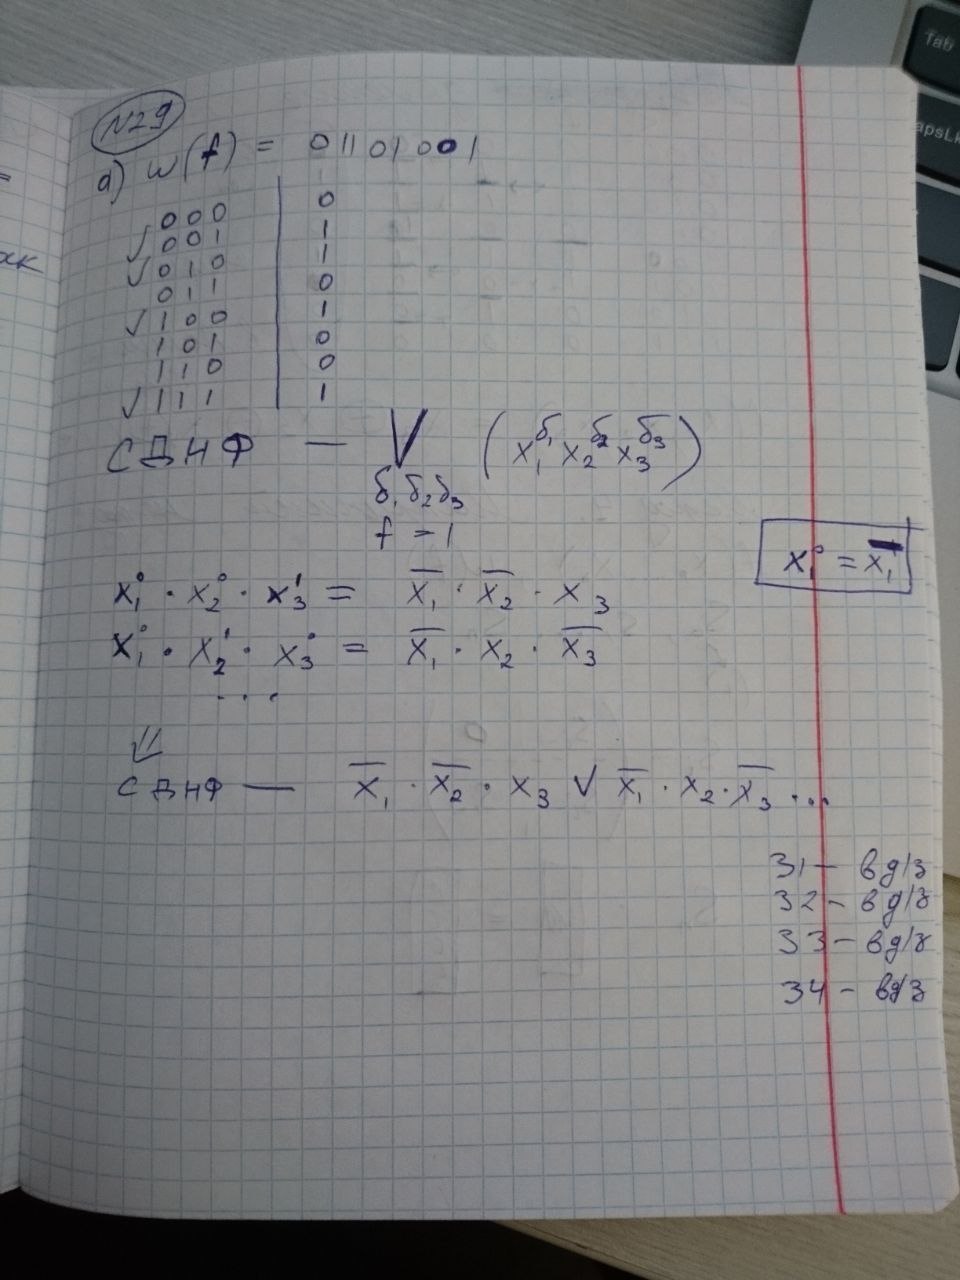 N29
а) w(f) = 01101001
000 | 0
✓ 001 | 1
✓ 010 | 1
011 | 0
✓ 100 | 1
101 | 0
110 | 0
✓ 111 | 1
СДНФ — V (x₁^б₁ x₂^б₂ x₃^б₃)
б₁б₂б₃
f = 1
x₁⁰ = x̅₁
x₁⁰ · x₂⁰ · x₃¹ = x̅₁ · x̅₂ · x₃
x₁⁰ · x₂¹ · x₃⁰ = x̅₁ · x₂ · x̅₃
...
⇓
СДНФ — x̅₁ · x̅₂ · x₃ V x̅₁ · x₂ · x̅₃ ...
31 — в д/з
32 — в д/з
33 — в д/з
34 — в д/з
Tab